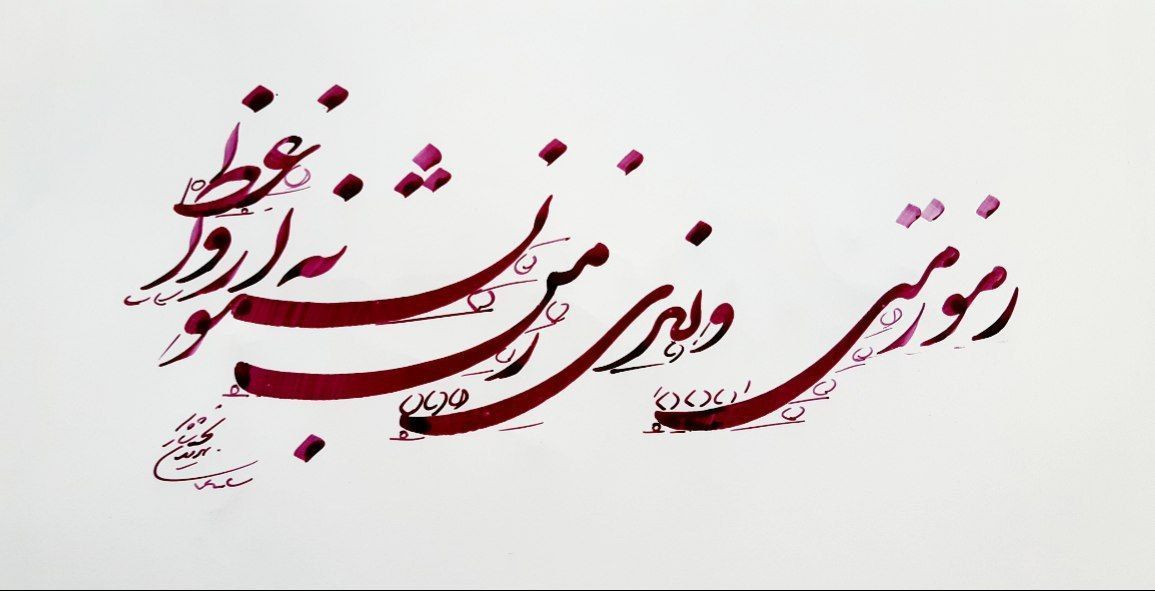 رموز مستی و رندی ز من بشنو نه از واعظ